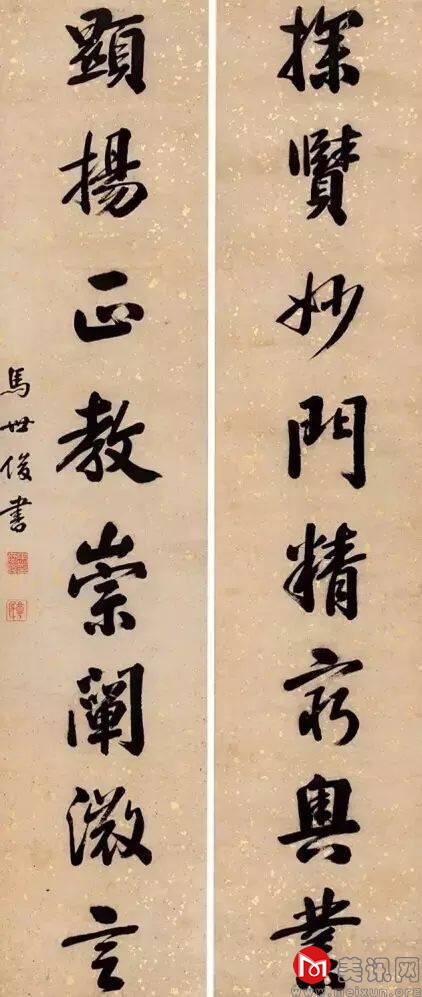 探賾妙門精窮奧業
顯揚正教崇闡微言
馬世俊書
美讯网
www.meixun.org